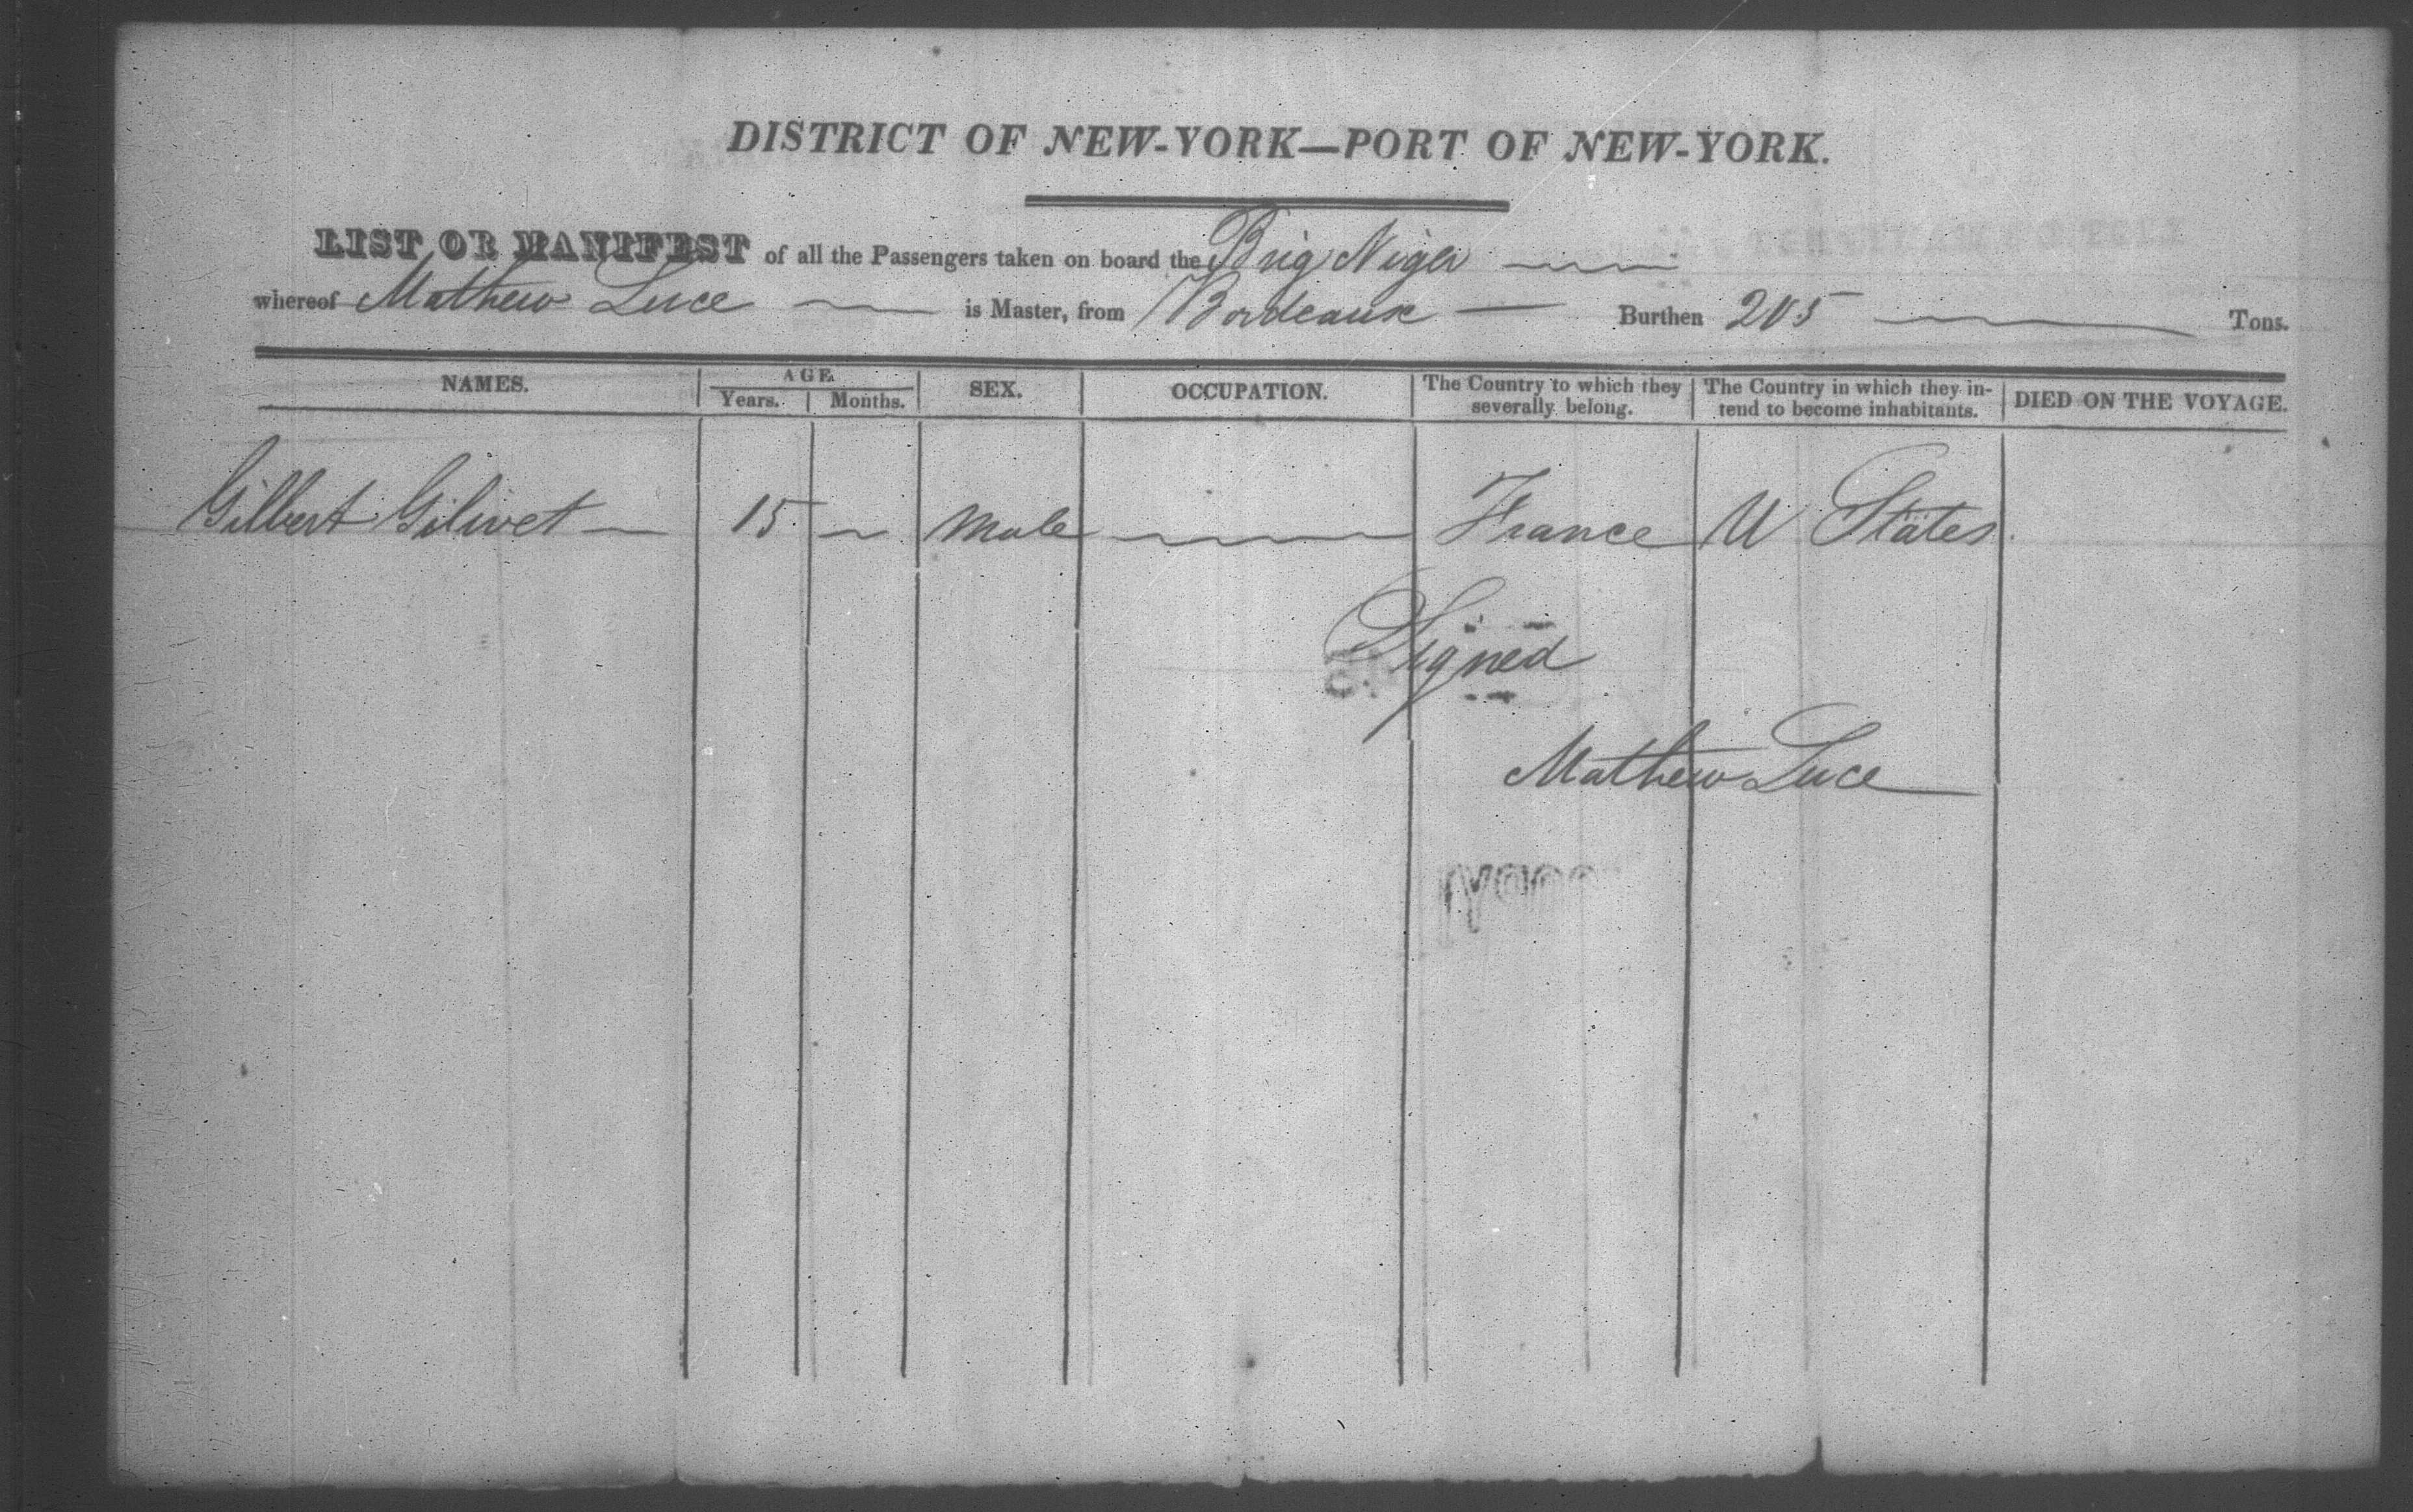 DISTRICT OF NEW-YORK—PORT OF NEW-YORK.
LIST OR MANIFEST of all the Passengers taken on board the Brig Niger
whereof Mathew Luce is Master, from Bordeaux Burthen 205 Tons.
NAMES. AGE. SEX. OCCUPATION. The Country to which they severally belong. The Country in which they intend to become inhabitants. DIED ON THE VOYAGE.
Years. Months.
Gilbert Gilivet — 15 — Male — France U States.
Signed
Mathew Luce